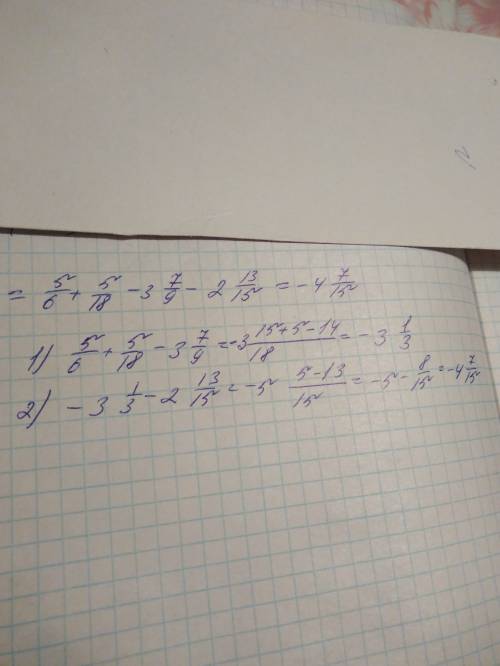 = 5/6 + 5/18 - 3 7/9 - 2 13/15 = - 4 7/15
1) 5/6 + 5/18 - 3 7/9 = -3 (15+5-14)/18 = - 3 1/3
2) - 3 1/3 - 2 13/15 = -5 (5-13)/15 = -5 - 8/15 = -4 7/15